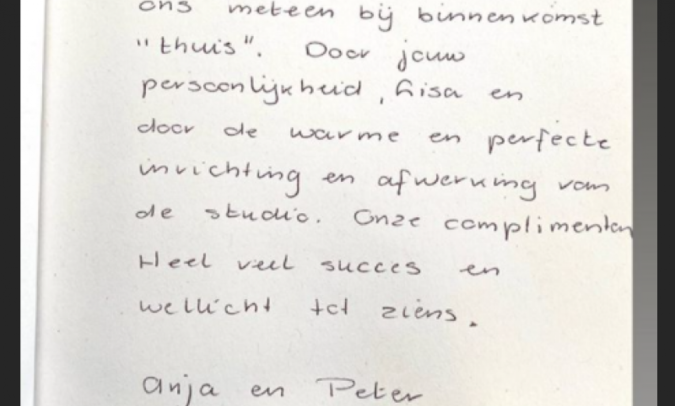 ons meteen bij binnenkomst
"thuis". Door jouw
persoonlijkheid, Lisa en
door de warme en perfecte
inrichting en afwerking van
de studio. Onze complimenten
Heel veel succes en
wellicht tot ziens.
Anja en Peter